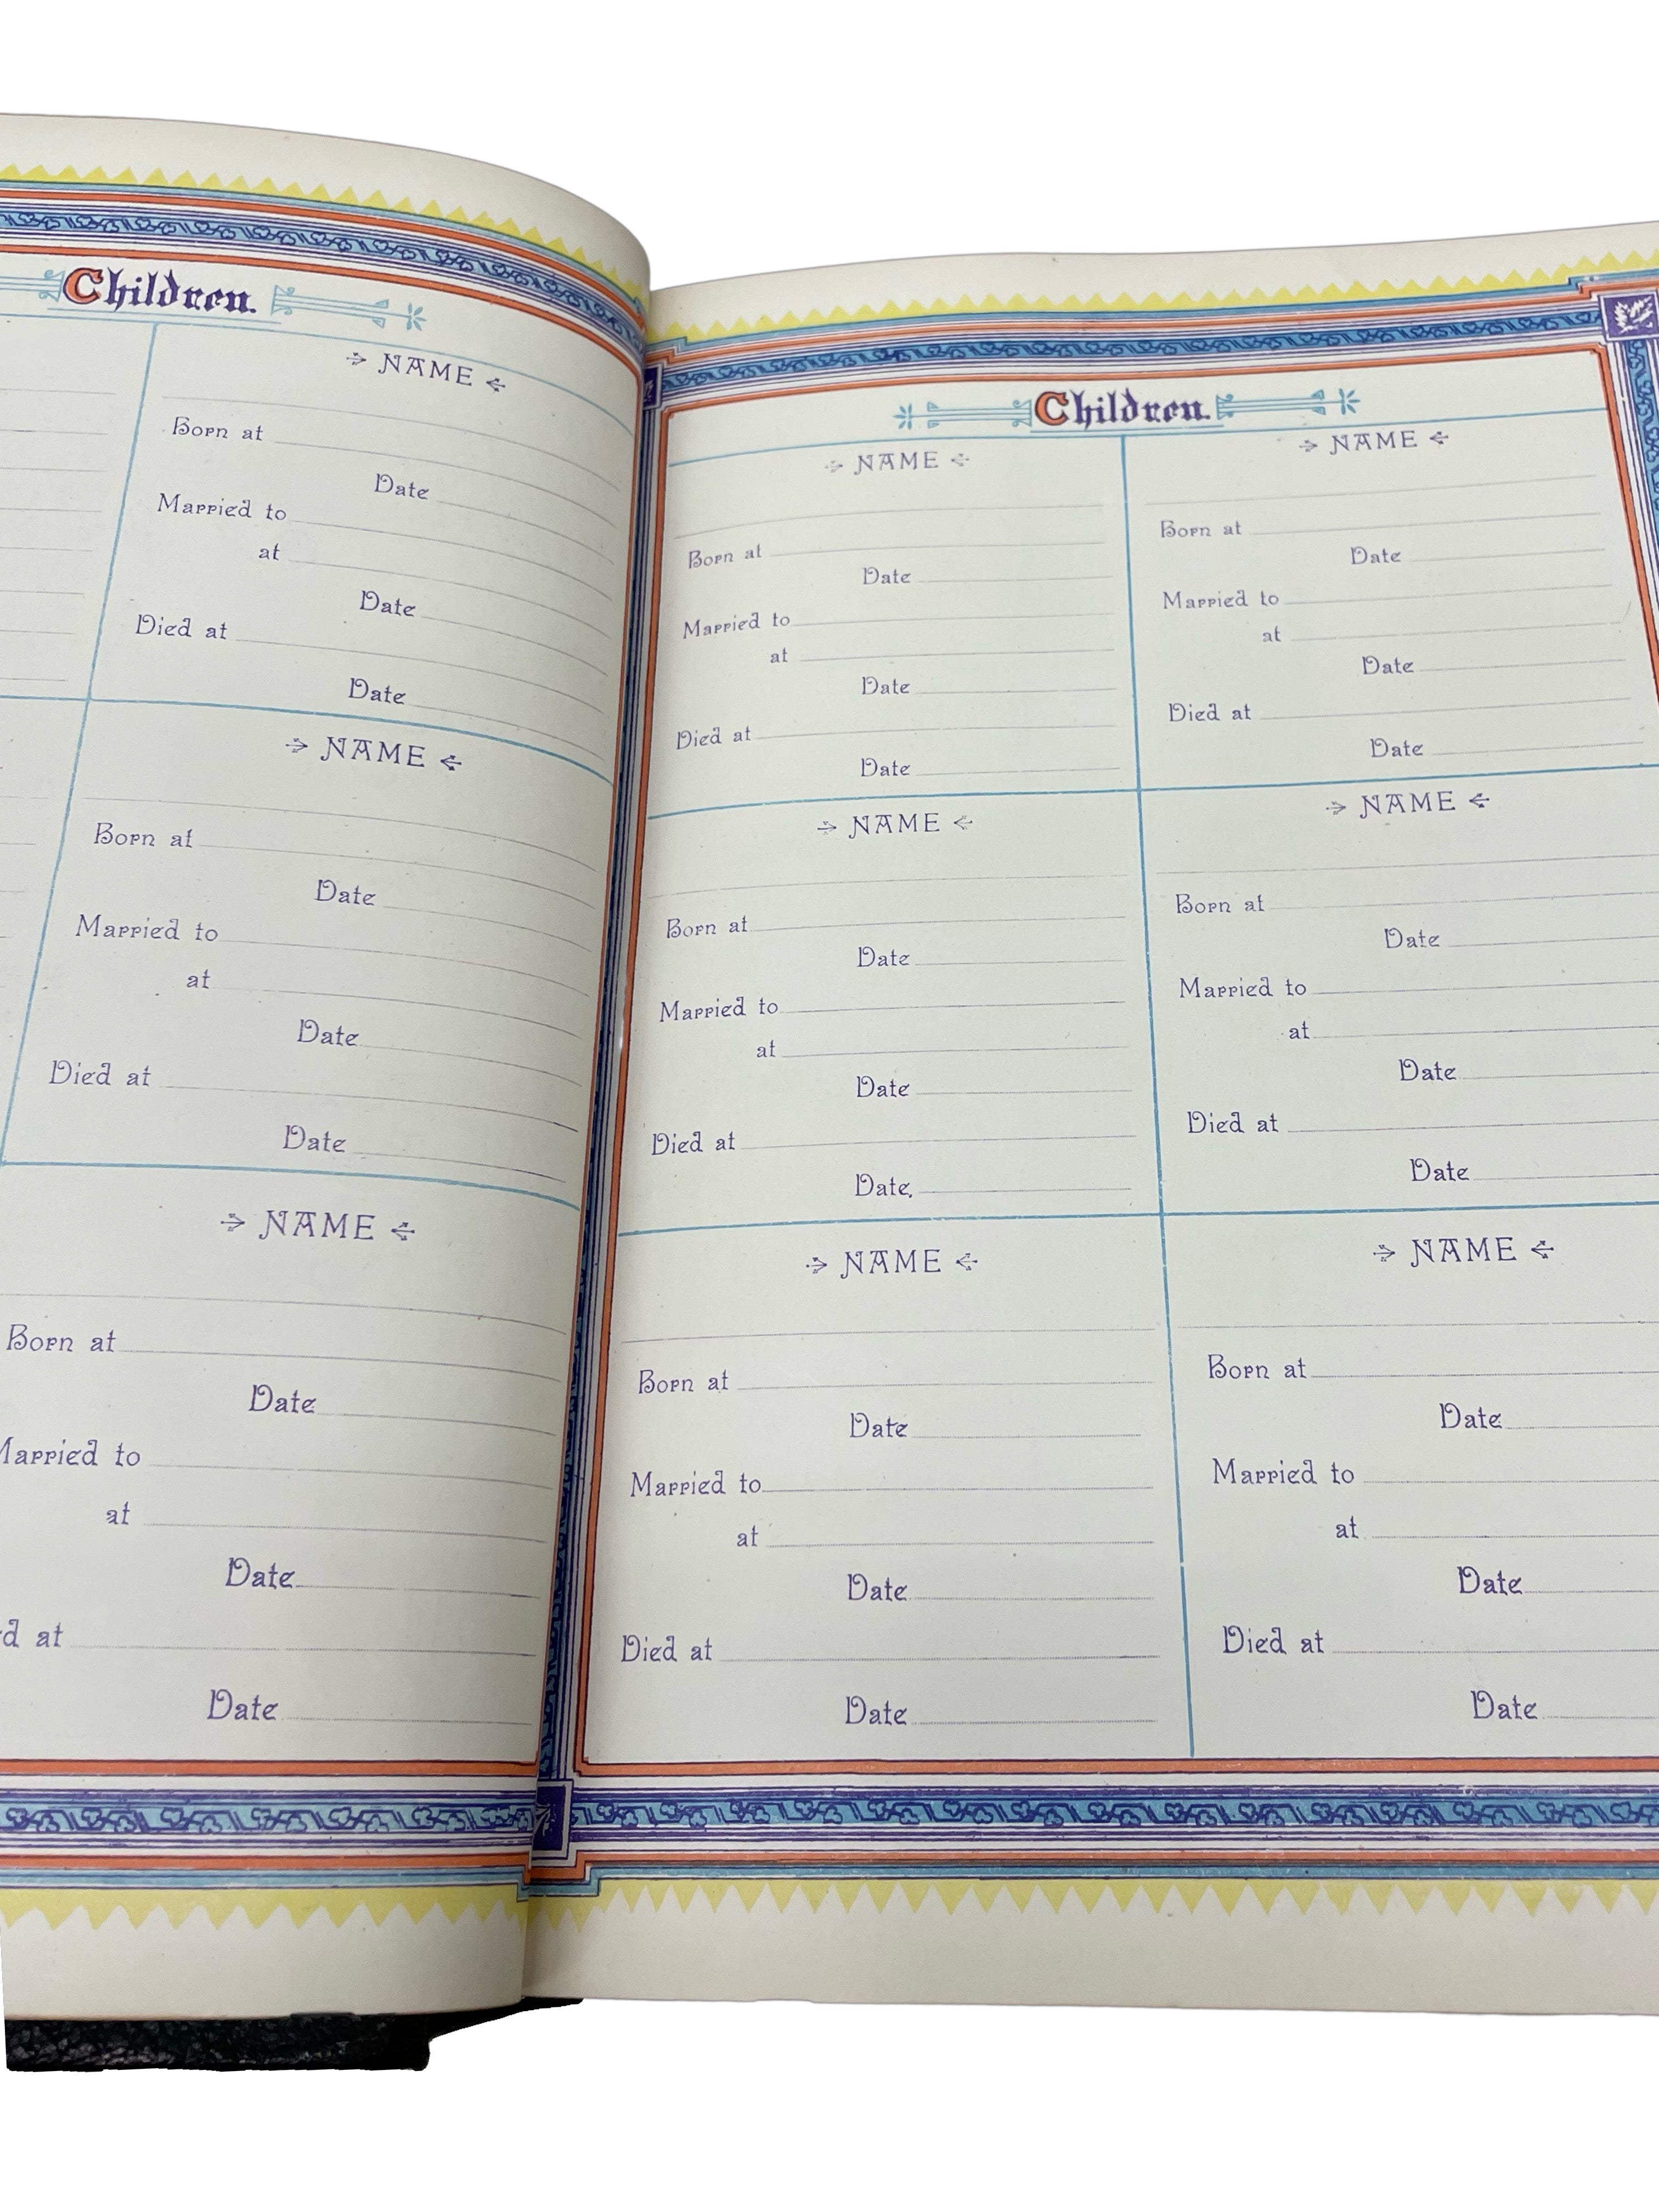 Children.
NAME
Born at
Date
Married to
at
Date
Died at
Date
NAME
Born at
Date
Married to
at
Date
Died at
Date
NAME
Born at
Date
Married to
at
Date
at
Date
Children.
NAME
Born at
Date
Married to
at
Date
Died at
Date
NAME
Born at
Date
Married to
at
Date
Died at
Date
NAME
Born at
Date
Married to
at
Date
Died at
Date.
NAME
Born at
Date
Married to
at
Date
Died at
Date
NAME
Born at
Date
Married to
at
Date
Died at
Date
NAME
Born at
Date
Married to
at
Date
Died at
Date